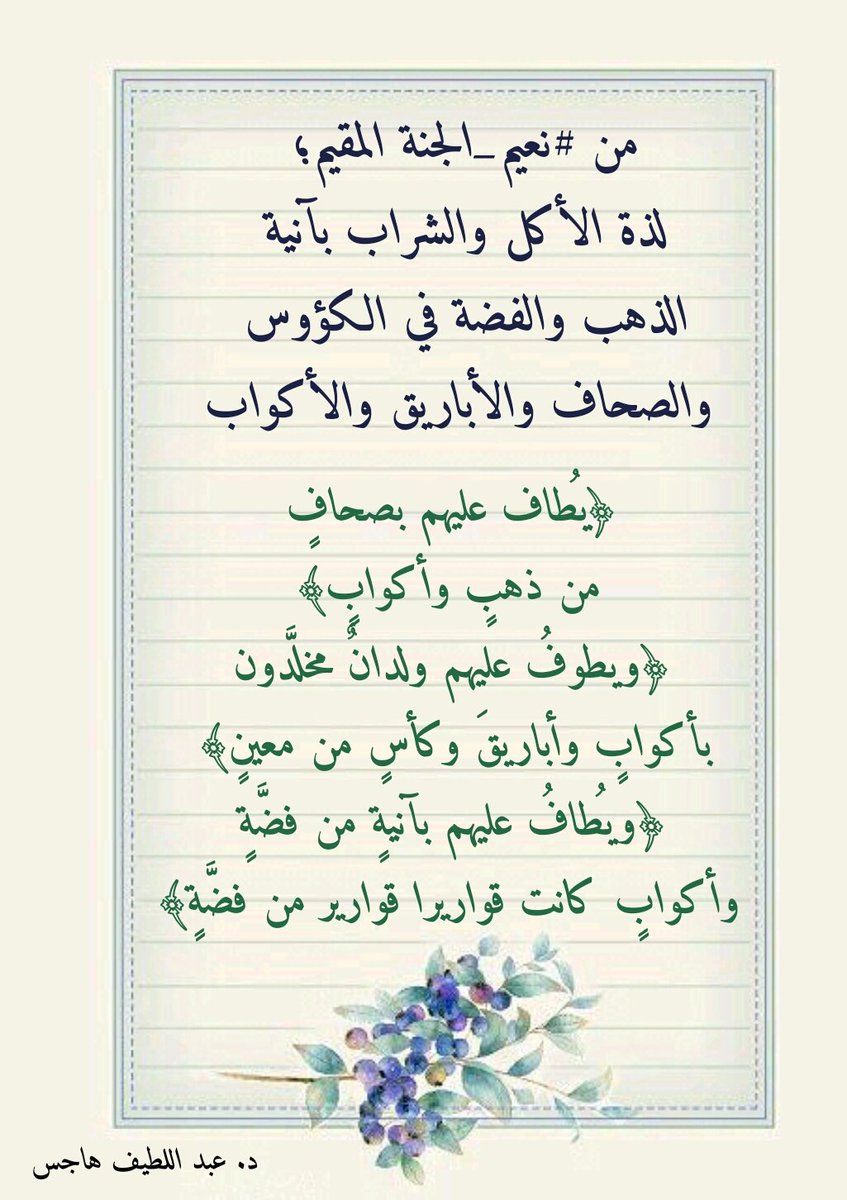 من #نعيم_الجنة المقيم؛
لذة الأكل والشراب بآنية
الذهب والفضة في الكؤوس
والصحاف والأباريق والأكواب
﴿يُطاف عليهم بصحافٍ
من ذهبٍ وأكوابٍ﴾
﴿ويطوفُ عليهم ولدانٌ مخلَّدون
بأكوابٍ وأباريقَ وكأسٍ من معينٍ﴾
﴿ويُطافُ عليهم بآنيةٍ من فضَّةٍ
وأكوابٍ كانت قواريرا قوارير من فضَّةٍ﴾
د. عبد اللطيف هاجس